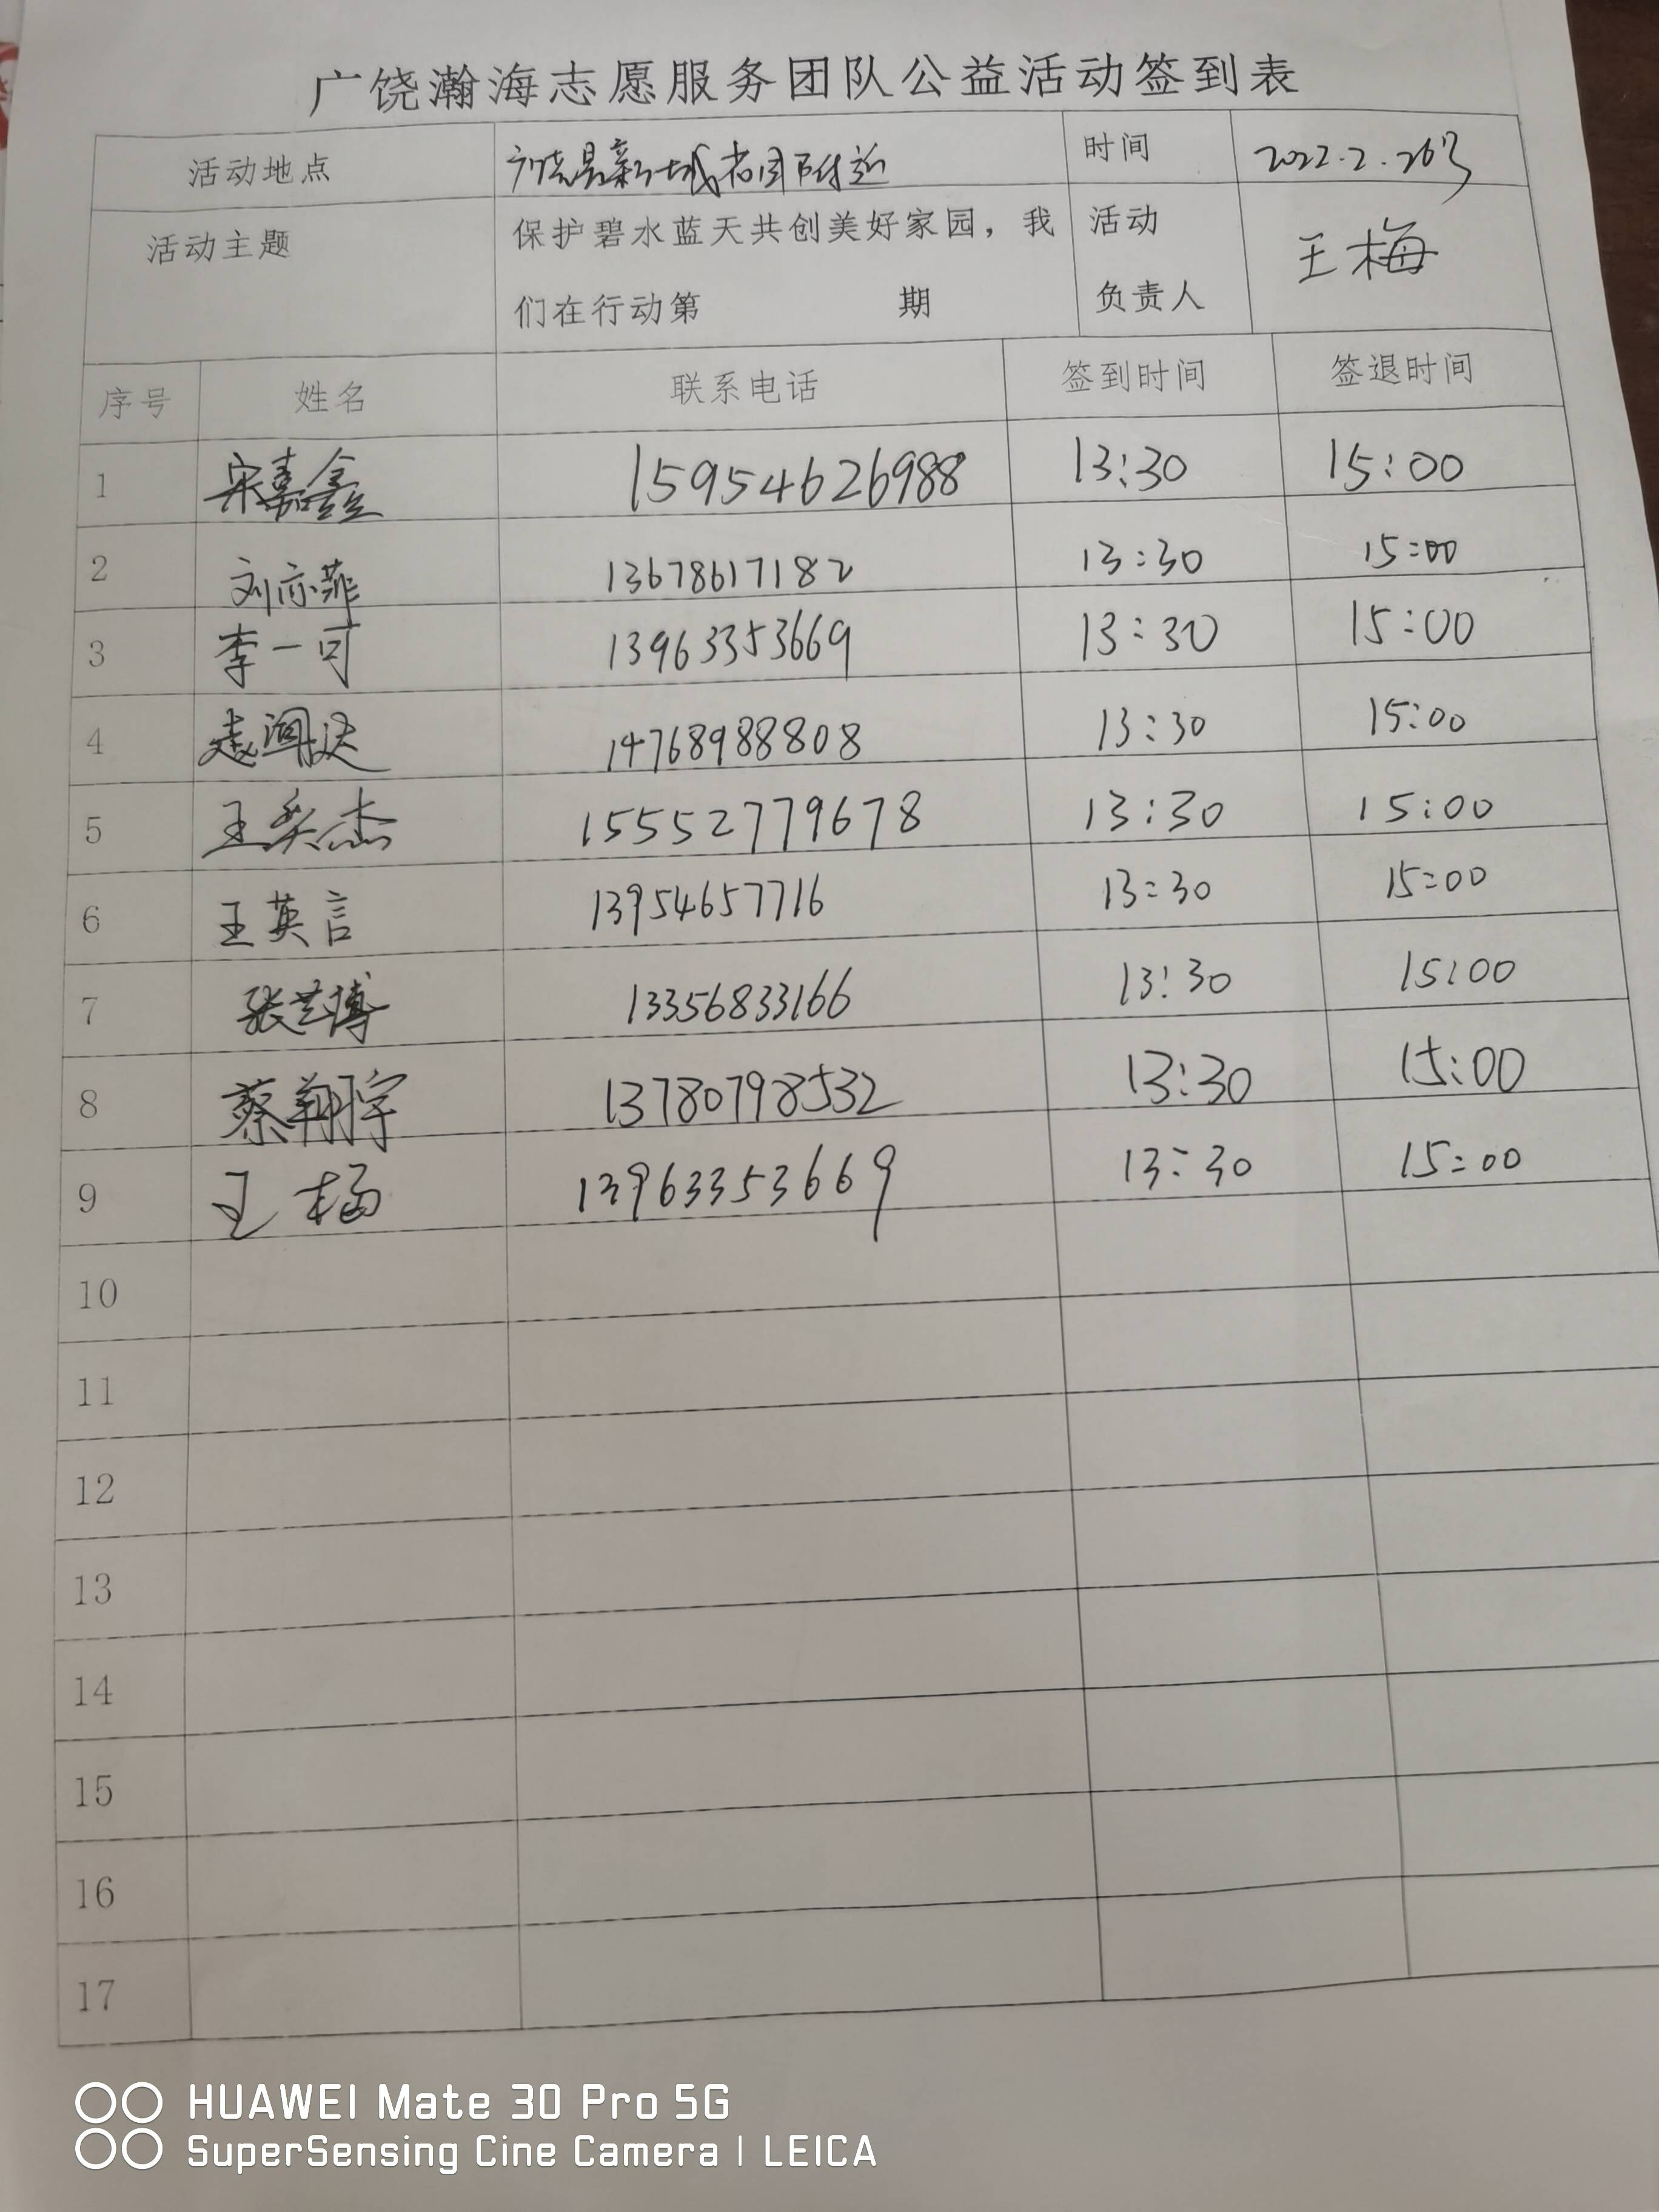 广饶瀚海志愿服务团队公益活动签到表
活动地点 广饶县新城 附近 时间 2022.2.26号
活动主题 保护碧水蓝天共创美好家园，我们在行动第 期 活动负责人 王梅
序号 姓名 联系电话 签到时间 签退时间
1 宋嘉鑫 15954626988 13:30 15:00
2 刘亦菲 13678617182 13:30 15:00
3 李一可 13963353669 13:30 15:00
4 14768988808 13:30 15:00
5 王奕杰 15552779678 13:30 15:00
6 王英言 13954657716 13:30 15:00
7 张艺博 13356833166 13:30 15:00
8 蔡翔宇 13780798532 13:30 15:00
9 王梅 13963353669 13:30 15:00
10
11
12
13
14
15
16
17
HUAWEI Mate 30 Pro 5G
SuperSensing Cine Camera | LEICA